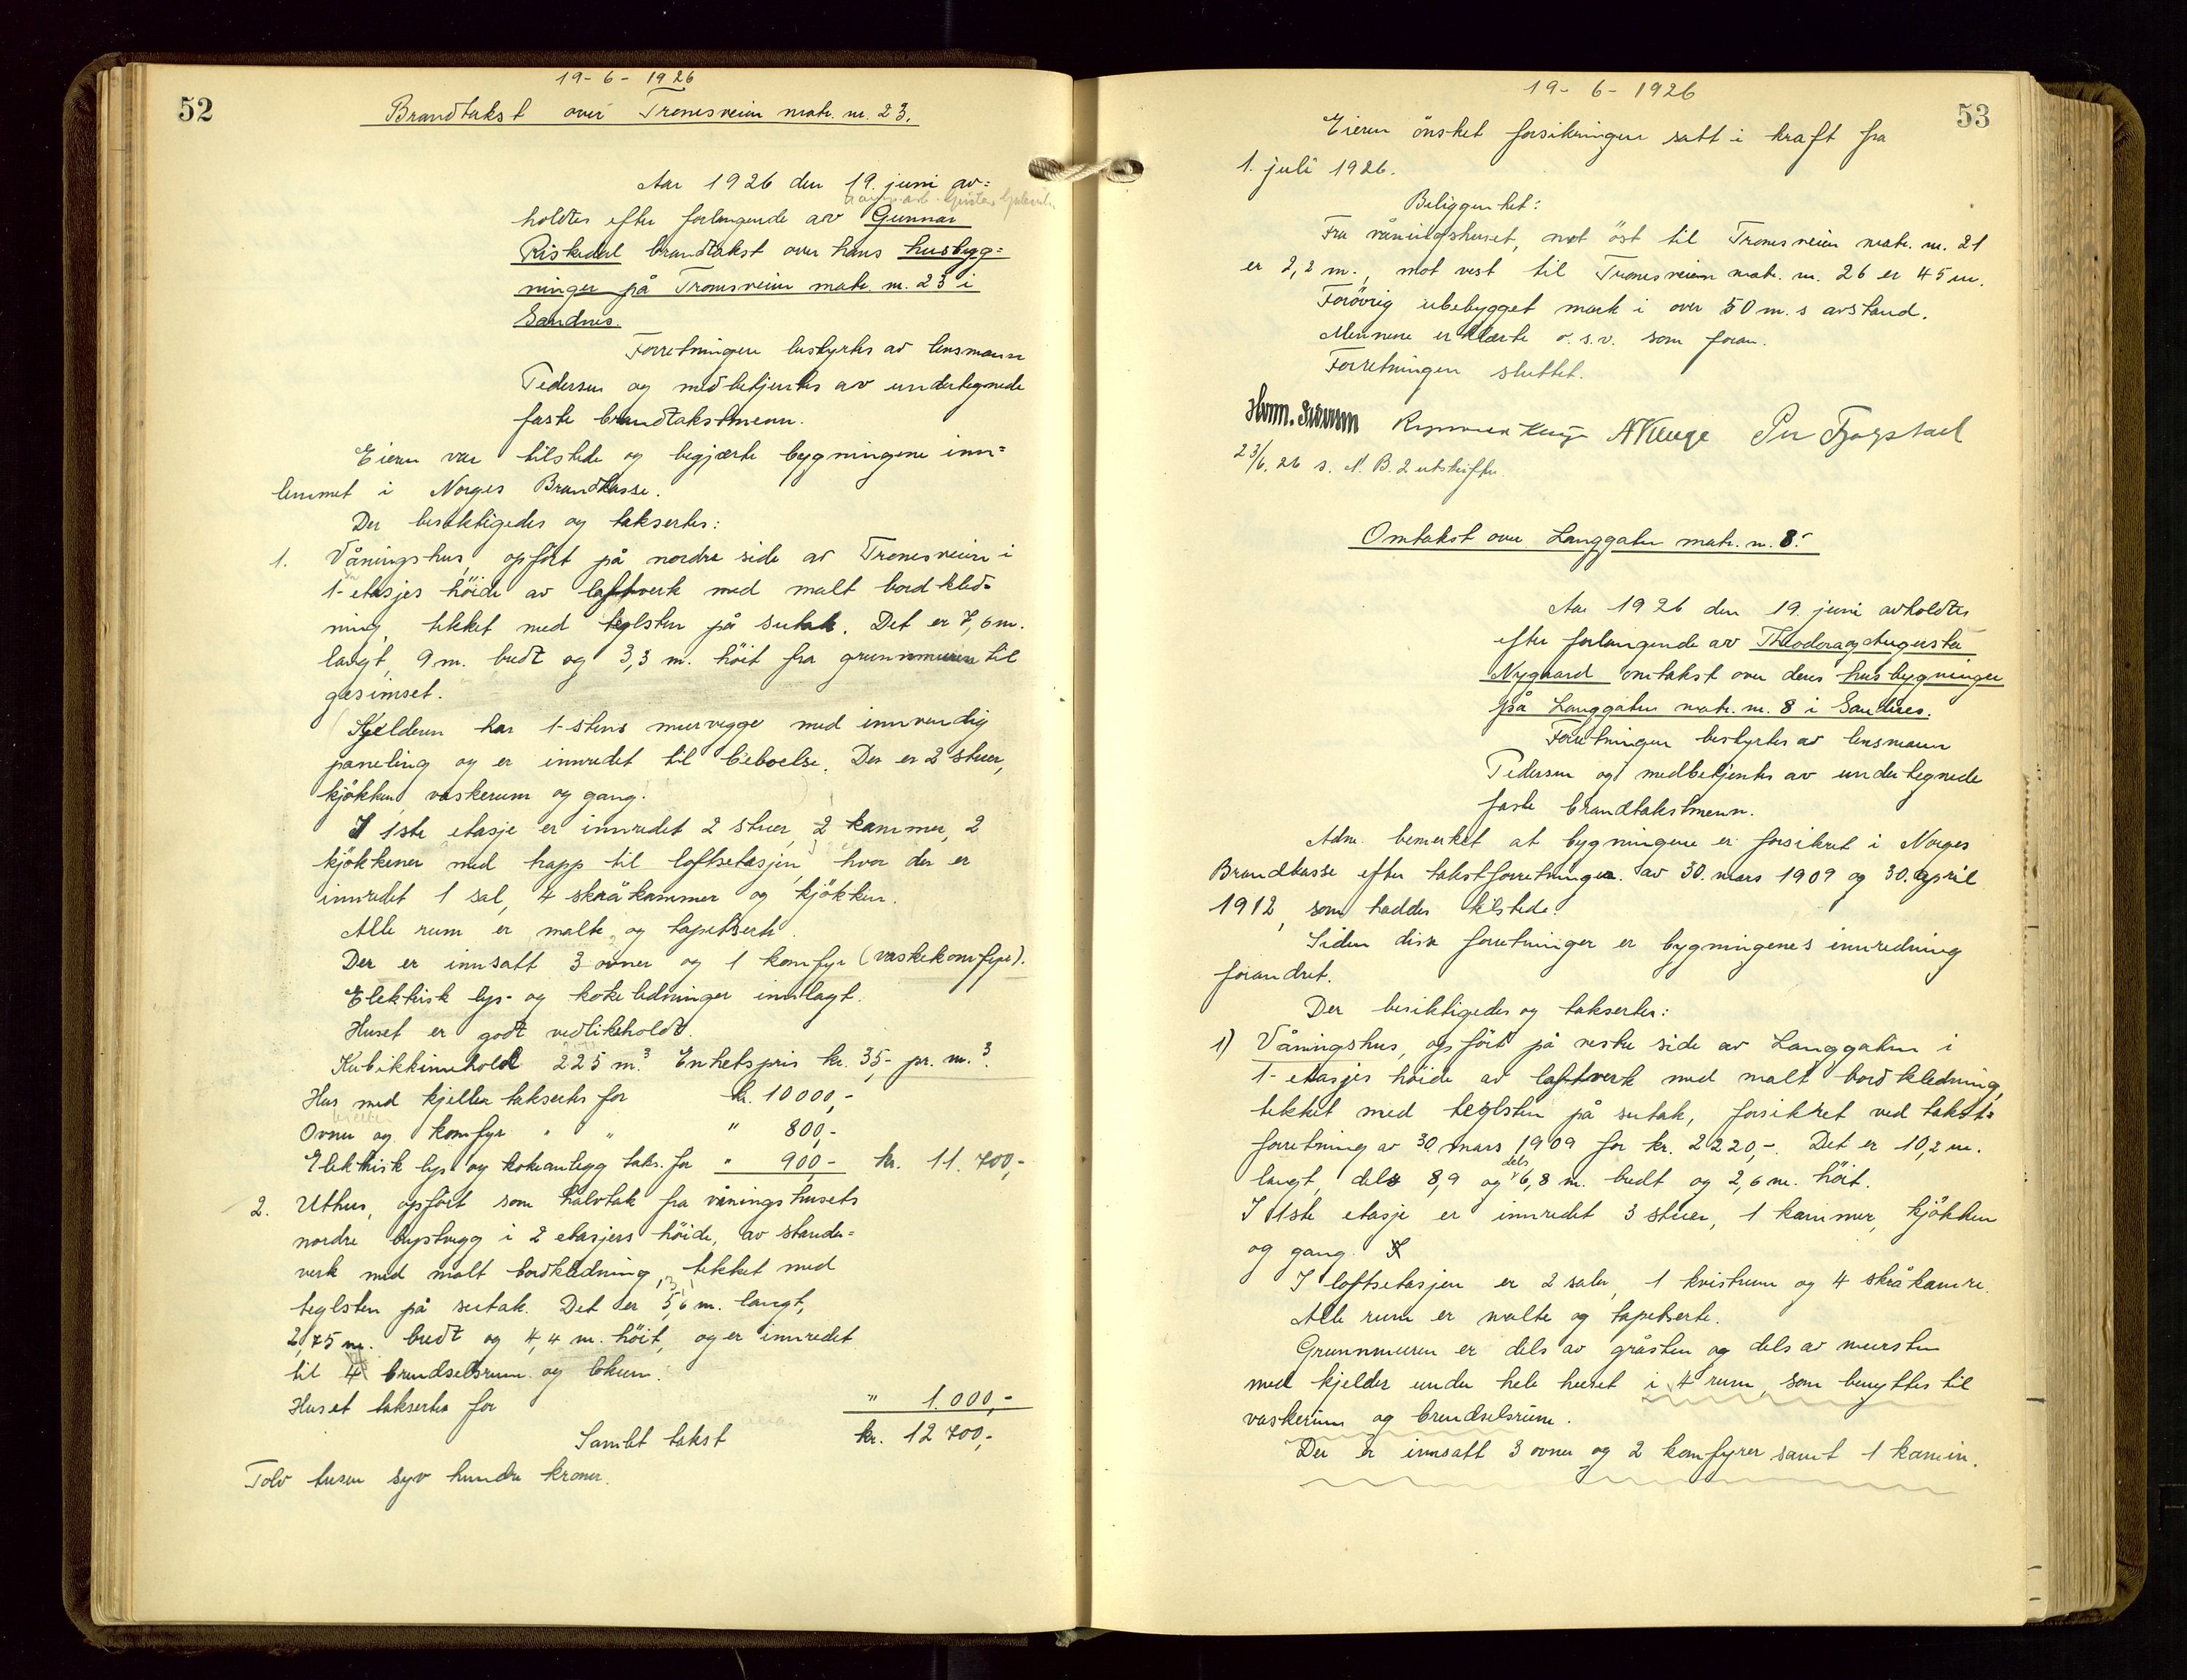 52
19-6-1926
Brandtakst over Tronesveien matr. nr. 23.
Aar 1926 den 19. juni av=
holdtes efter forlangende av Gunnar
Riskedal brandtakst over hans husbygg=
ninger på Tronesveien matr. nr. 23 i
Sandnes.
Forretningen bestyrtes av lensmann
Pedersen og medbetjentes av undertegnede
faste brandtakstmenn.
Eieren var tilstede og begjærte bygningene inn=
lemmet i Norges Brandkasse.
Der besiktigedes og taksertes:
1. Våningshus, opført på nordre side av Tronesveien i
1-etasjes höide av laftverk med malt bordkled=
ning, tekket med teglsten på sutak. Det er 7,6 m.
langt, 9 m. bredt og 3,3 m. höit fra grunnmuren til
gesimset.
Kjelderen har 1-stens murvegge med innvendig
paneling og er innredet til beboelse. Der er 2 stuer,
kjökken, vaskerum og gang.
I 1ste etasje er innredet 2 stuer, 2 kammer, 2
kjökkener med trapp til loftsetasjen, hvor der er
innredet 1 sal, 4 skråkammer og kjökken.
Alle rum er malte og tapetserte.
Der er innsatt 3 ovner og 1 komfyr (vaskekomfyr).
Elektrisk lys- og kokeledninger innlagt.
Huset er godt vedlikeholdt.
Kubikkinnehold 225 m.³ Enhetspris kr. 35,- pr. m.³
Hus med kjeller taksertes for kr. 10000,-
Ovner og komfyr " " " 800,-
Elektrisk lys og kokeanlegg taks. for " 900,- kr. 11.700,-
2. Uthus, opfört som halvtak fra våningshusets
nordre langvegg i 2 etasjers höide, av stender=
verk med malt bordkledning, tekket med
teglsten på sutak. Det er 5,6 m. langt,
2,75 m. bredt og 4,4 m. höit, og er innredet
til 4 brendselsrum og lokum.
Huset takseres for " 1.000,-
Samlet takst kr. 12 700,-
Tolv tusen syv hundre kroner.
53
19-6-1926
Eieren önsket forsikringen satt i kraft fra
1. juli 1926.
Beliggenhet:
Fra våningshuset, mot öst til Tronesveien matr. nr. 21
er 2,2 m., mot vest til Tronesveien matr. nr. 26 er 45 m.
Forövrig ubebygget mark i over 50 m.s avstand.
Mennene erklærte o.s.v. som foran.
Forretningen sluttet.
A Kluge Per Fjogstad
23/6. 26 s. N. B. 2 utskrifter.
Omtakst over Langgaten matr. nr. 8.
Aar 1926 den 19. juni avholdtes
efter forlangende av Theodora og Augusta
Nygaard omtakst over deres husbygninger
på Langgaten matr. nr. 8 i Sandnes.
Forretningen bestyrtes av lensmann
Pedersen og medbetjentes av undertegnede
faste brandtakstmenn.
Adm. bemerket at bygningene er forsikret i Norges
Brandkasse efter takstforretninger av 30. mars 1909 og 30. april
1912, som haddes tilstede.
Siden disse forretninger er bygningenes innredning
forandret.
Der besiktigedes og taksertes:
1) Våningshus, opfört på vestre side av Langgaten i
1-etasjes höide av laftverk med malt bordkledning,
tekket med teglsten på sutak, forsikret ved takst=
forretning av 30. mars 1909 for kr. 2220,-. Det er 10,2 m.
langt, dels 8,9 og dels 6,8 m. bredt og 2,6 m. höit.
I 1ste etasje er innredet 3 stuer, 1 kammer, kjökken
og gang.
I loftsetasjen er 2 saler, 1 kvistrum og 4 skråkamre.
Alle rum er malte og tapetserte.
Grunnmuren er dels av gråsten og dels av mursten
med kjelder under hele huset i 4 rum, som benyttes til
vaskerum og brendselsrum.
Der er innsatt 3 ovner og 2 komfyrer samt 1 kamin.